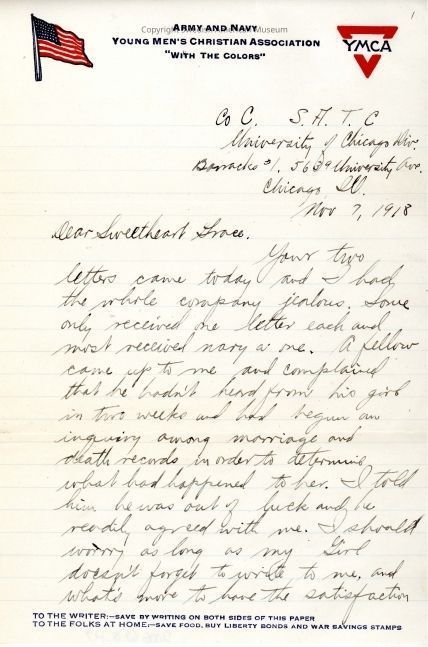 1
Copyright
Museum
ARMY AND NAVY
YOUNG MEN'S CHRISTIAN ASSOCIATION
"WITH THE COLORS"
YMCA
Co C. S. A. T. C
University of Chicago Div.
Barracks #1. 5639 University Ave.
Chicago, Ill.
Nov 7, 1918
Dear Sweetheart Grace.
Your two
letters came today and I had
the whole company jealous. Some
only received one letter each and
most received nary a one. A fellow
came up to me and complained
that he hadn't heard from his girl
in two weeks and had begun an
inquiry among marriage and
death records in order to determine
what had happened to her. I told
him he was out of luck and he
readily agreed with me. I should
worry as long as my Girl
doesn't forget to write to me, and
what's more to have the satisfaction
TO THE WRITER:—SAVE BY WRITING ON BOTH SIDES OF THIS PAPER
TO THE FOLKS AT HOME.—SAVE FOOD, BUY LIBERTY BONDS AND WAR SAVINGS STAMPS